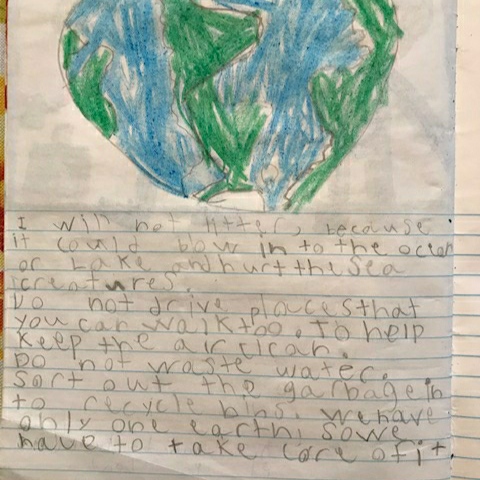 I will not litter, because
it could bow in to the ocean
or Lake and hurt the Sea
creatures.
Do not drive places that
you can walk too. to help
Keep the air clean.
Do not waste water.
Sort out the garbage in
to recycle bins. we have
only one earth, so we
have to take care of it